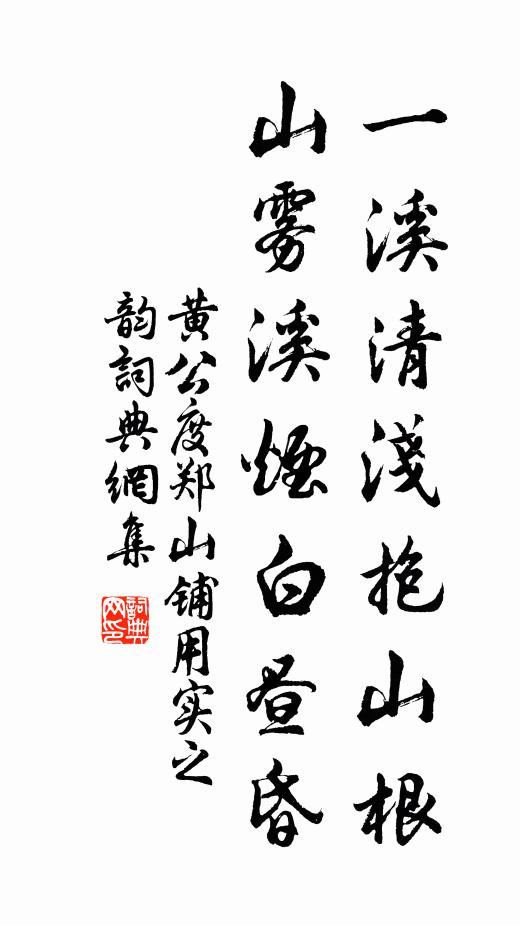 一溪清淺抱山根
山雾溪煙白昼昏
黄公度郑山铺用实之
韵詞典網集
詞典网印